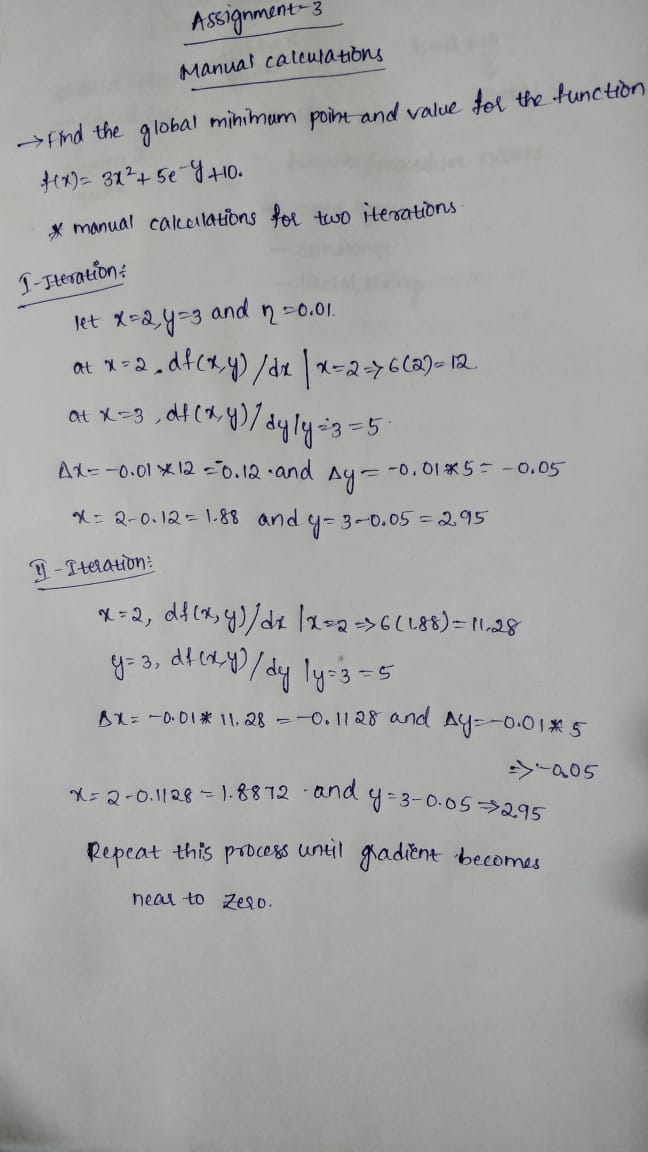 Assignment-3
Manual calculations
→ Find the global minimum point and value for the function
f(x)= 3x²+5e^-y+10.
* manual calculations for two iterations.
I-Iteration:
let x=2,y=3 and η=0.01.
at x=2, df(x,y)/dx | x=2 ⇒ 6(2)=12.
at x=3, df(x,y)/dy|y=3 =5.
Δx= -0.01*12 =-0.12 and Δy= -0.01*5= -0.05
x= 2-0.12= 1.88 and y= 3-0.05=2.95
II-Iteration:
x=2, df(x,y)/dx |x=2 ⇒ 6(1.88)=11.28
y=3, df(x,y)/dy |y=3 =5
Δx= -0.01* 11.28 = -0.1128 and Δy=-0.01*5
⇒ -0.05
x= 2-0.1128 = 1.8872 and y=3-0.05 ⇒ 2.95
Repeat this process until gradient becomes
near to zero.